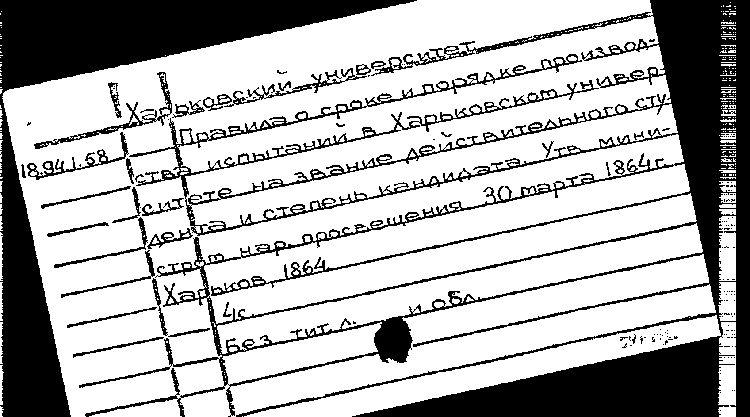 Харьковский университет
Правила о сроке и порядке производ-
18.94.1.58 ства испытаний в Харьковском универ-
ситете на звание действительного сту-
дента и степень кандидата. Утв. мини-
стром нар. просвещения 30 марта 1864г.
Харьков, 1864.
4с.
Без тит. л. и обл.